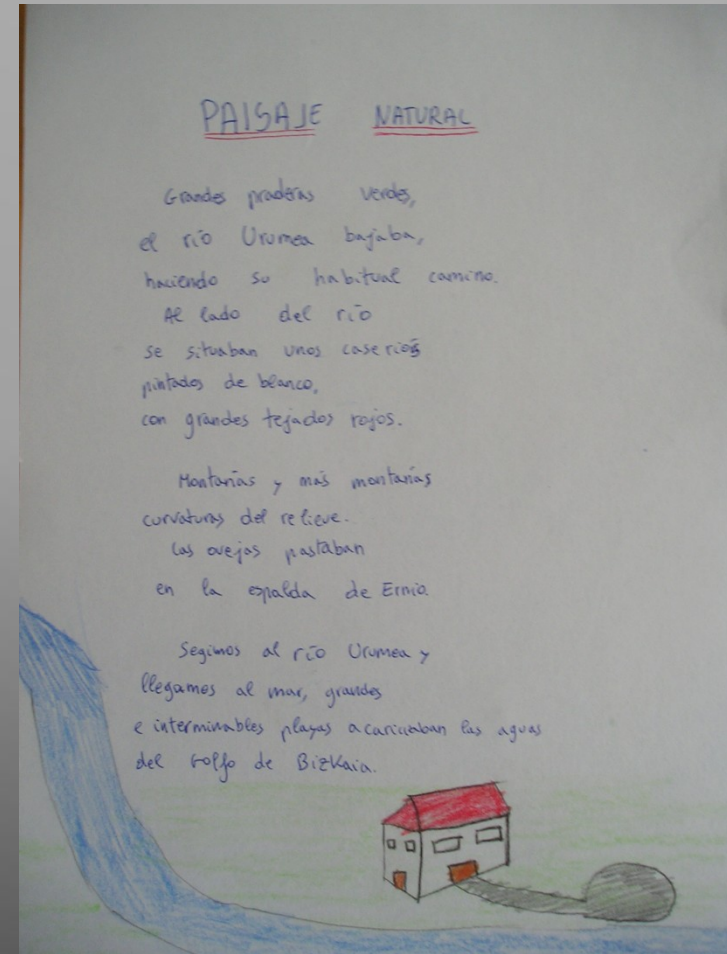 PAISAJE NATURAL
Grandes praderas verdes,
el río Urumea bajaba,
haciendo su habitual camino.
Al lado del río
se situaban unos caseríos
pintados de blanco,
con grandes tejados rojos.
Montañas y más montañas
curvaturas del relieve.
Las ovejas pastaban
en la espalda de Ernio.
Segimos al río Urumea y
llegamos al mar, grandes
e interminables playas acariciaban las aguas
del Golfo de Bizkaia.